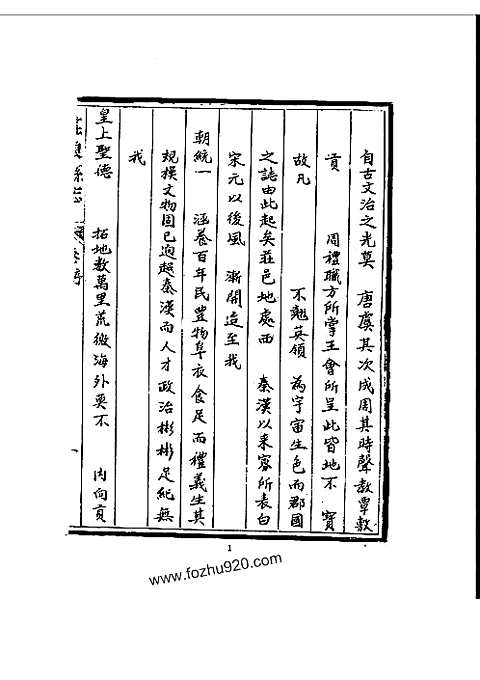 自古文治之光莫　唐虞其次成周其時聲教覃敷
貢　周禮職方所掌王會所呈此皆地不　寶
故凡　不勉英領　為宇宙生色而郡國
之誌由此起矣莊邑地處西　秦漢以來寥所表白
宋元以後風　漸開迨至我
朝統一　涵養百年民豊物阜衣食足而禮義生其
規模文物固已逈越秦漢而人才政治彬彬足紀無
我
皇上聖德　拓地數萬里荒徼海外奠不　內向貢
莊浪縣志
1
www.fozhu920.com